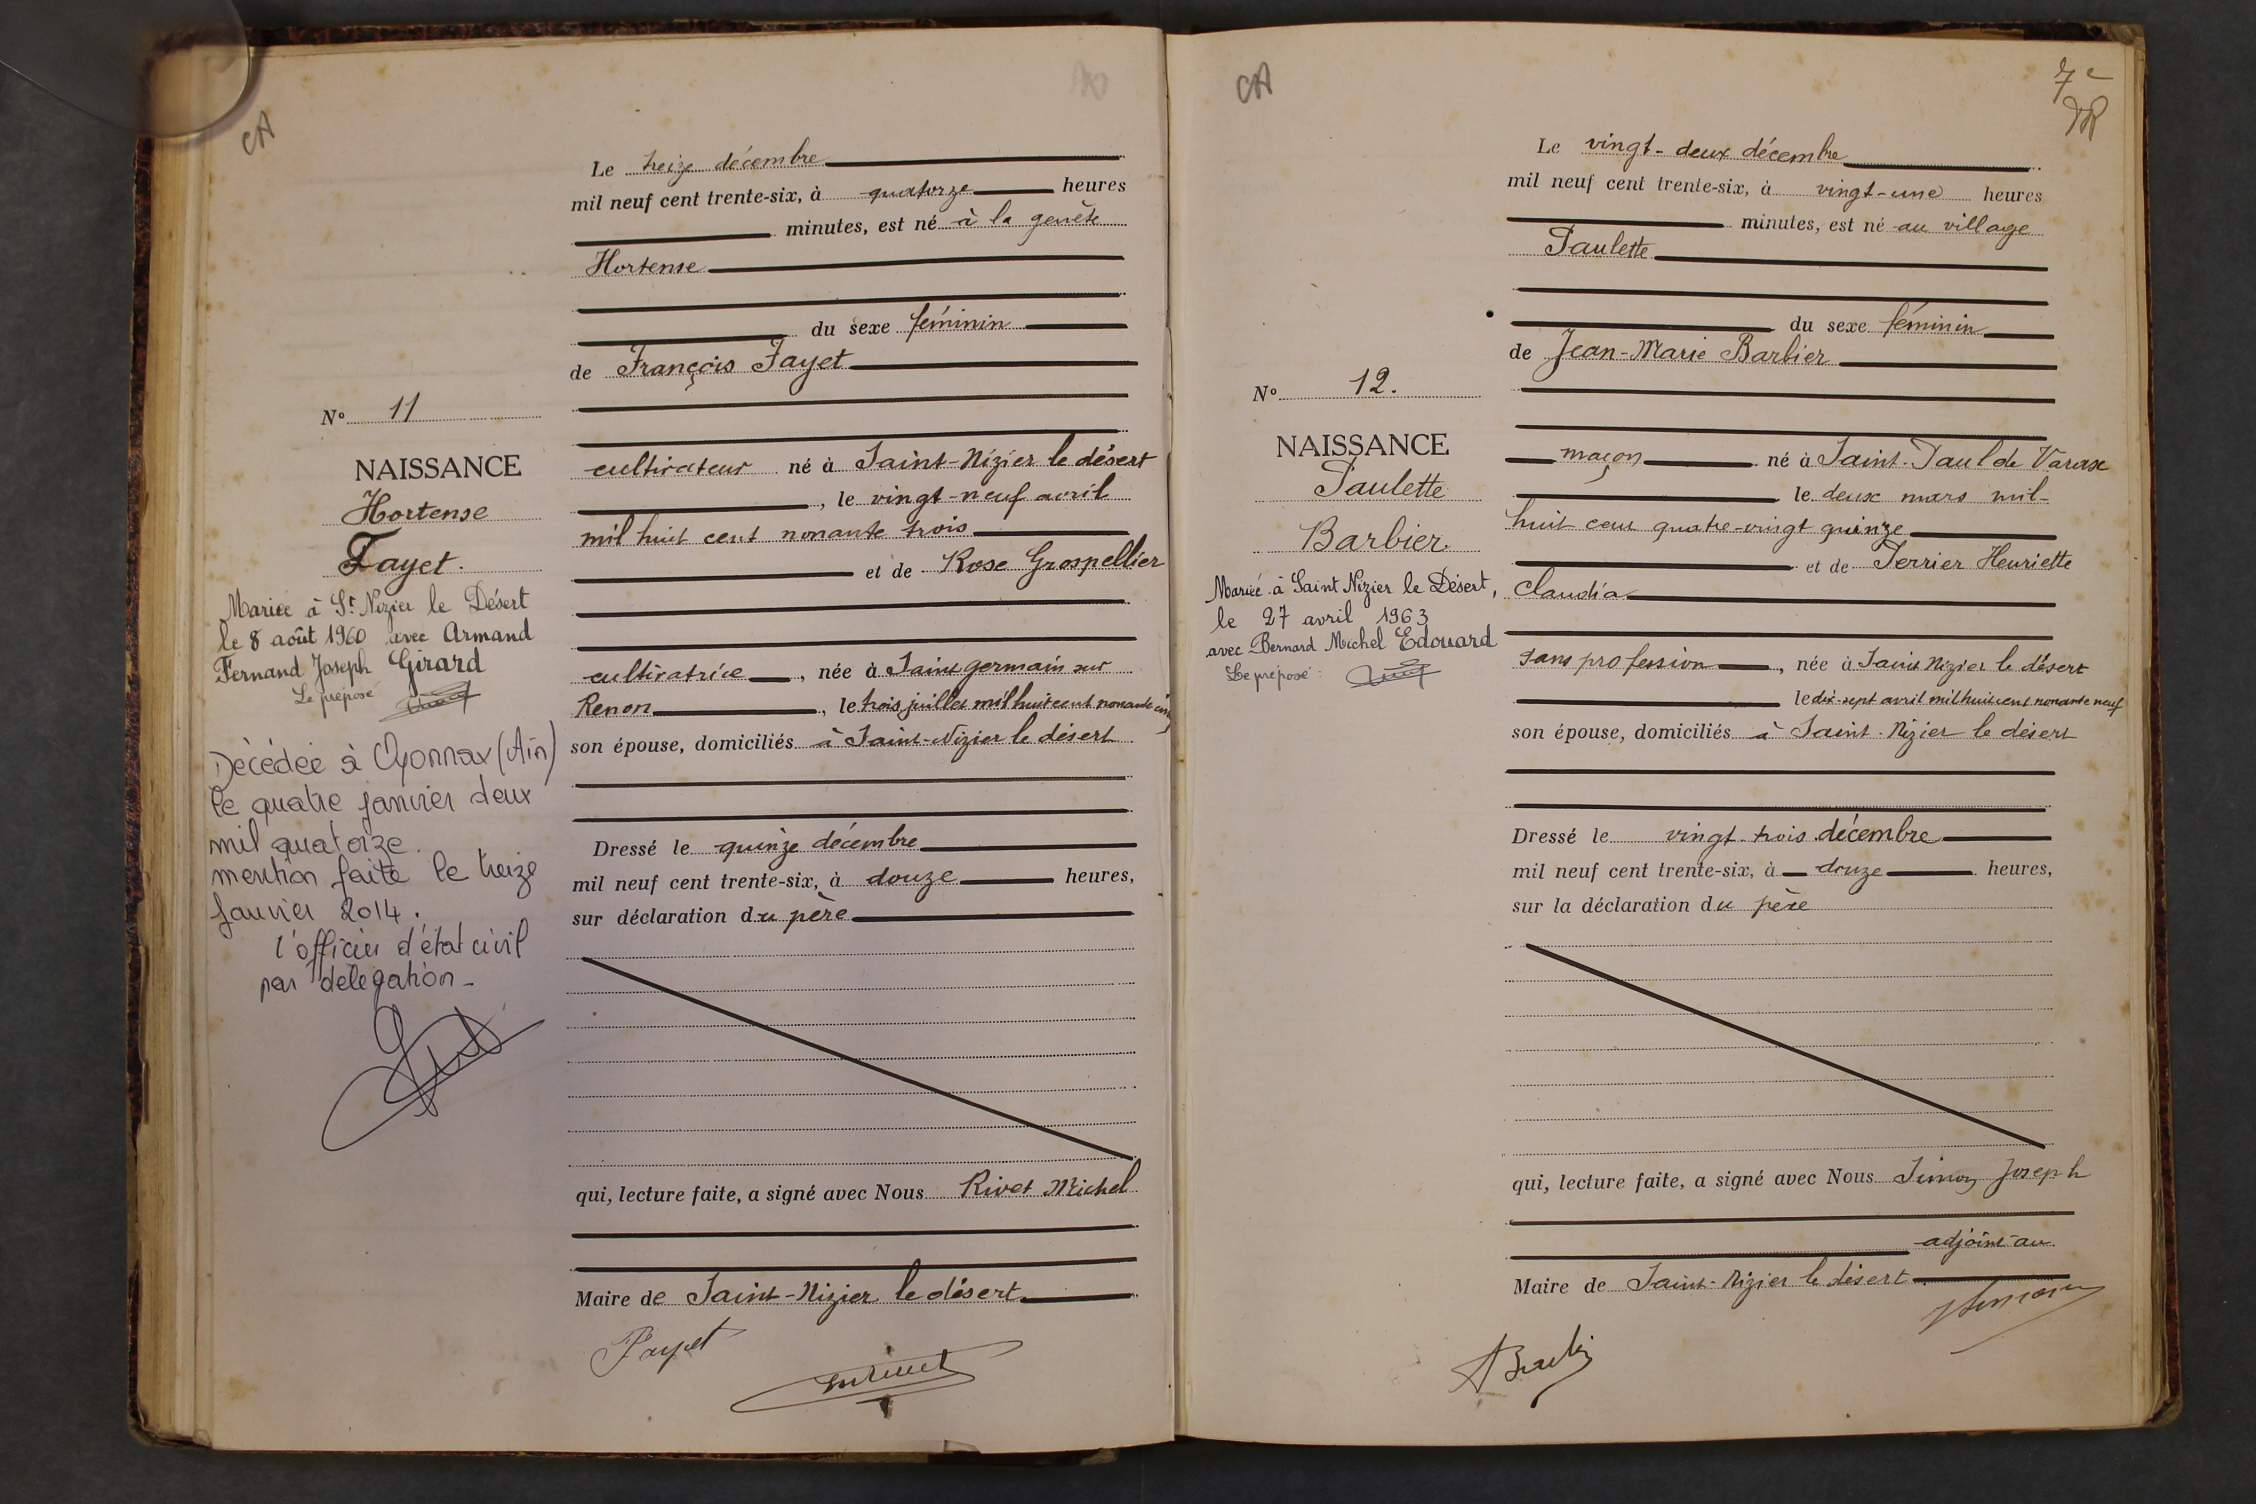 CA
Le treize décembre
mil neuf cent trente-six, à quatorze heures
minutes, est né à la genête
Hortense
du sexe féminin
de François Fayet
N° 11
NAISSANCE
Hortense
Fayet.
cultivateur né à Saint-Nizier le désert
, le vingt-neuf avril
mil huit cent nonante trois
et de Rose Grospellier
Mariée à St Nizier le Désert
le 8 août 1960 avec Armand
Fernand Joseph Girard
Le préposé
cultivatrice, née à Saint germain sur
Renon, le trois juillet mil huit cent nonante cinq
son épouse, domiciliés à Saint-Nizier le désert
Décédée à Oyonnax (Ain)
le quatre janvier deux
mil quatorze.
mention faite le treize
janvier 2014.
l'officier d'état civil
par délégation -
Dressé le quinze décembre
mil neuf cent trente-six, à douze heures,
sur déclaration du père
qui, lecture faite, a signé avec Nous Rivet Michel
Maire de Saint-Nizier le désert
Fayet
CA
7e
Le vingt-deux décembre
mil neuf cent trente-six, à vingt-une heures
minutes, est né au village
Paulette
du sexe féminin
de Jean-Marie Barbier
N° 12.
NAISSANCE
Paulette
Barbier.
maçon né à Saint-Paul de Varax
le deux mars mil-
huit cent quatre-vingt quinze
et de Perrier Henriette
Claudia
Mariée à Saint Nizier le Désert,
le 27 avril 1963
avec Bernard Michel Edouard
Le préposé :
sans profession, née à Saint Nizier le désert
le dix-sept avril mil huit cent nonante neuf
son épouse, domiciliés à Saint-Nizier le désert
Dressé le vingt-trois décembre
mil neuf cent trente-six, à douze heures,
sur la déclaration du père
qui, lecture faite, a signé avec Nous Simon Joseph
adjoint au
Maire de Saint-Nizier le désert